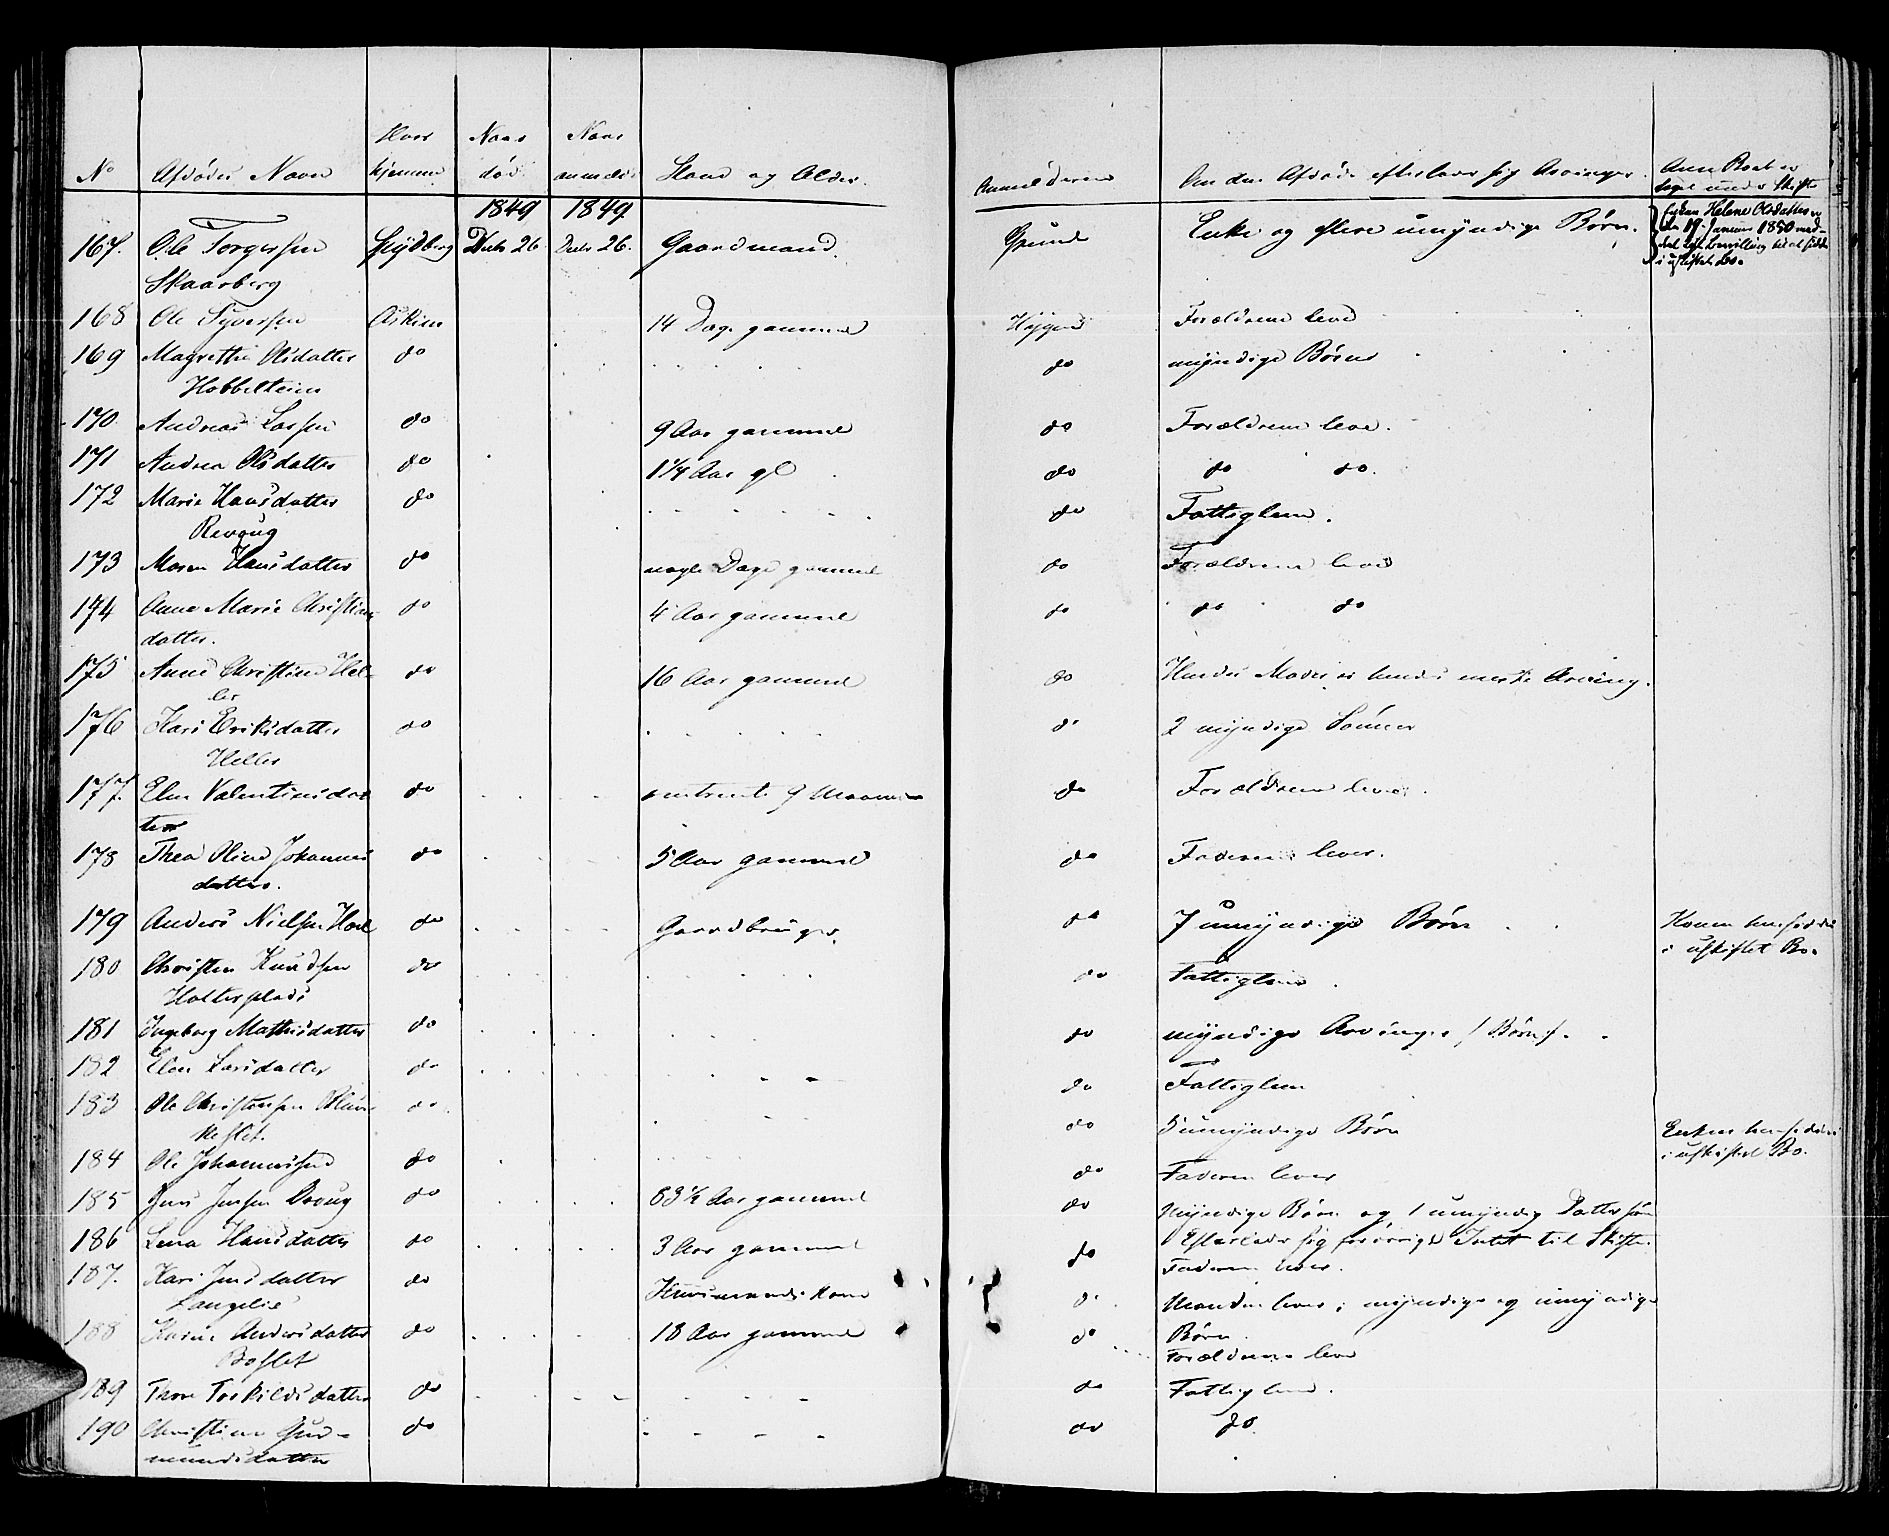 No Afdødes Navn Hvor hjemme Naar død Naar anmeldt Stand og Alder. Anmelderen Om den Afdøde efterlader sig Arvinger. Anm. Boet er taget under Skifte
1849 1849
167. Ole Torgersen Spydberg Decbr 26 Decbr 26. Gaardmand. Grund Enke og flere umyndige Børn. Enken Helene Olsdatter er den 19 Januar 1850 meddelt Bevilling til at sidde i uskiftet Bo.
Skaarberg
168 Ole Syversen Askim 14 Dage gammel Forældrene leve
169 Magrethe Olsdatter do do myndige Børn
Hobbelstein
170. Andreas Larsen do 9 Aar gammel do Forældrene leve.
171 Andrea Olsdatter do 1¼ Aar gl do do do.
172 Marie Hansdatter do do Fattiglem.
Revoug
173 Maren Hansdatter do nogle Dage gammel do Forældrene leve
174 Anne Marie Christians do 4 Aar gammel do do do
datter.
175 Anne Christine Hel- do 16 Aar gammel do Hendes Moder er hendes næste Arving.
ler
176 Kari Eriksdatter do do 2 myndige Sønner
Heller
177. Elen Valentinsdat do omtrent 9 Maaneder do Forældrene leve.
ter
178 Thea Oline Johannes do 5 Aar gammel do Faderen lever.
datter.
179 Anders Nielsen Hoel do Gaardbruger. do 7 umyndige Børn Konen hensidder
i uskiftet Bo.
180 Christen Knudsen do do Fattiglem
Holterplads
181 Ingeborg Mathisdatter do do myndige Arvinger /: Børn :/.
182 Elen Larsdatter do do Fattiglem
183 Ole Christensen do do 5 umyndige Børn Enken hensidder
i uskiftet Bo.
184 Ole Johannessen do do Faderen lever
185 Jens Jensen do 83½ Aar gammel do myndige Børn og 1 umyndig Dattersøn
186 Lena Hansdatter do 3 Aar gammel do Efterlader sig forøvrigt Intet til Skifte.
Faderen lever.
187. Kari Jensdatter do Huusmands Kone do Manden lever; myndige og umyndige
Langelie Børn.
188 Karen Andersdatter do 18 Aar gammel do Forældrene leve
Boslet
189 Thore Torkildsdatter do do Fattiglem.
190 Christine Gud- do do do.
mundsdatter